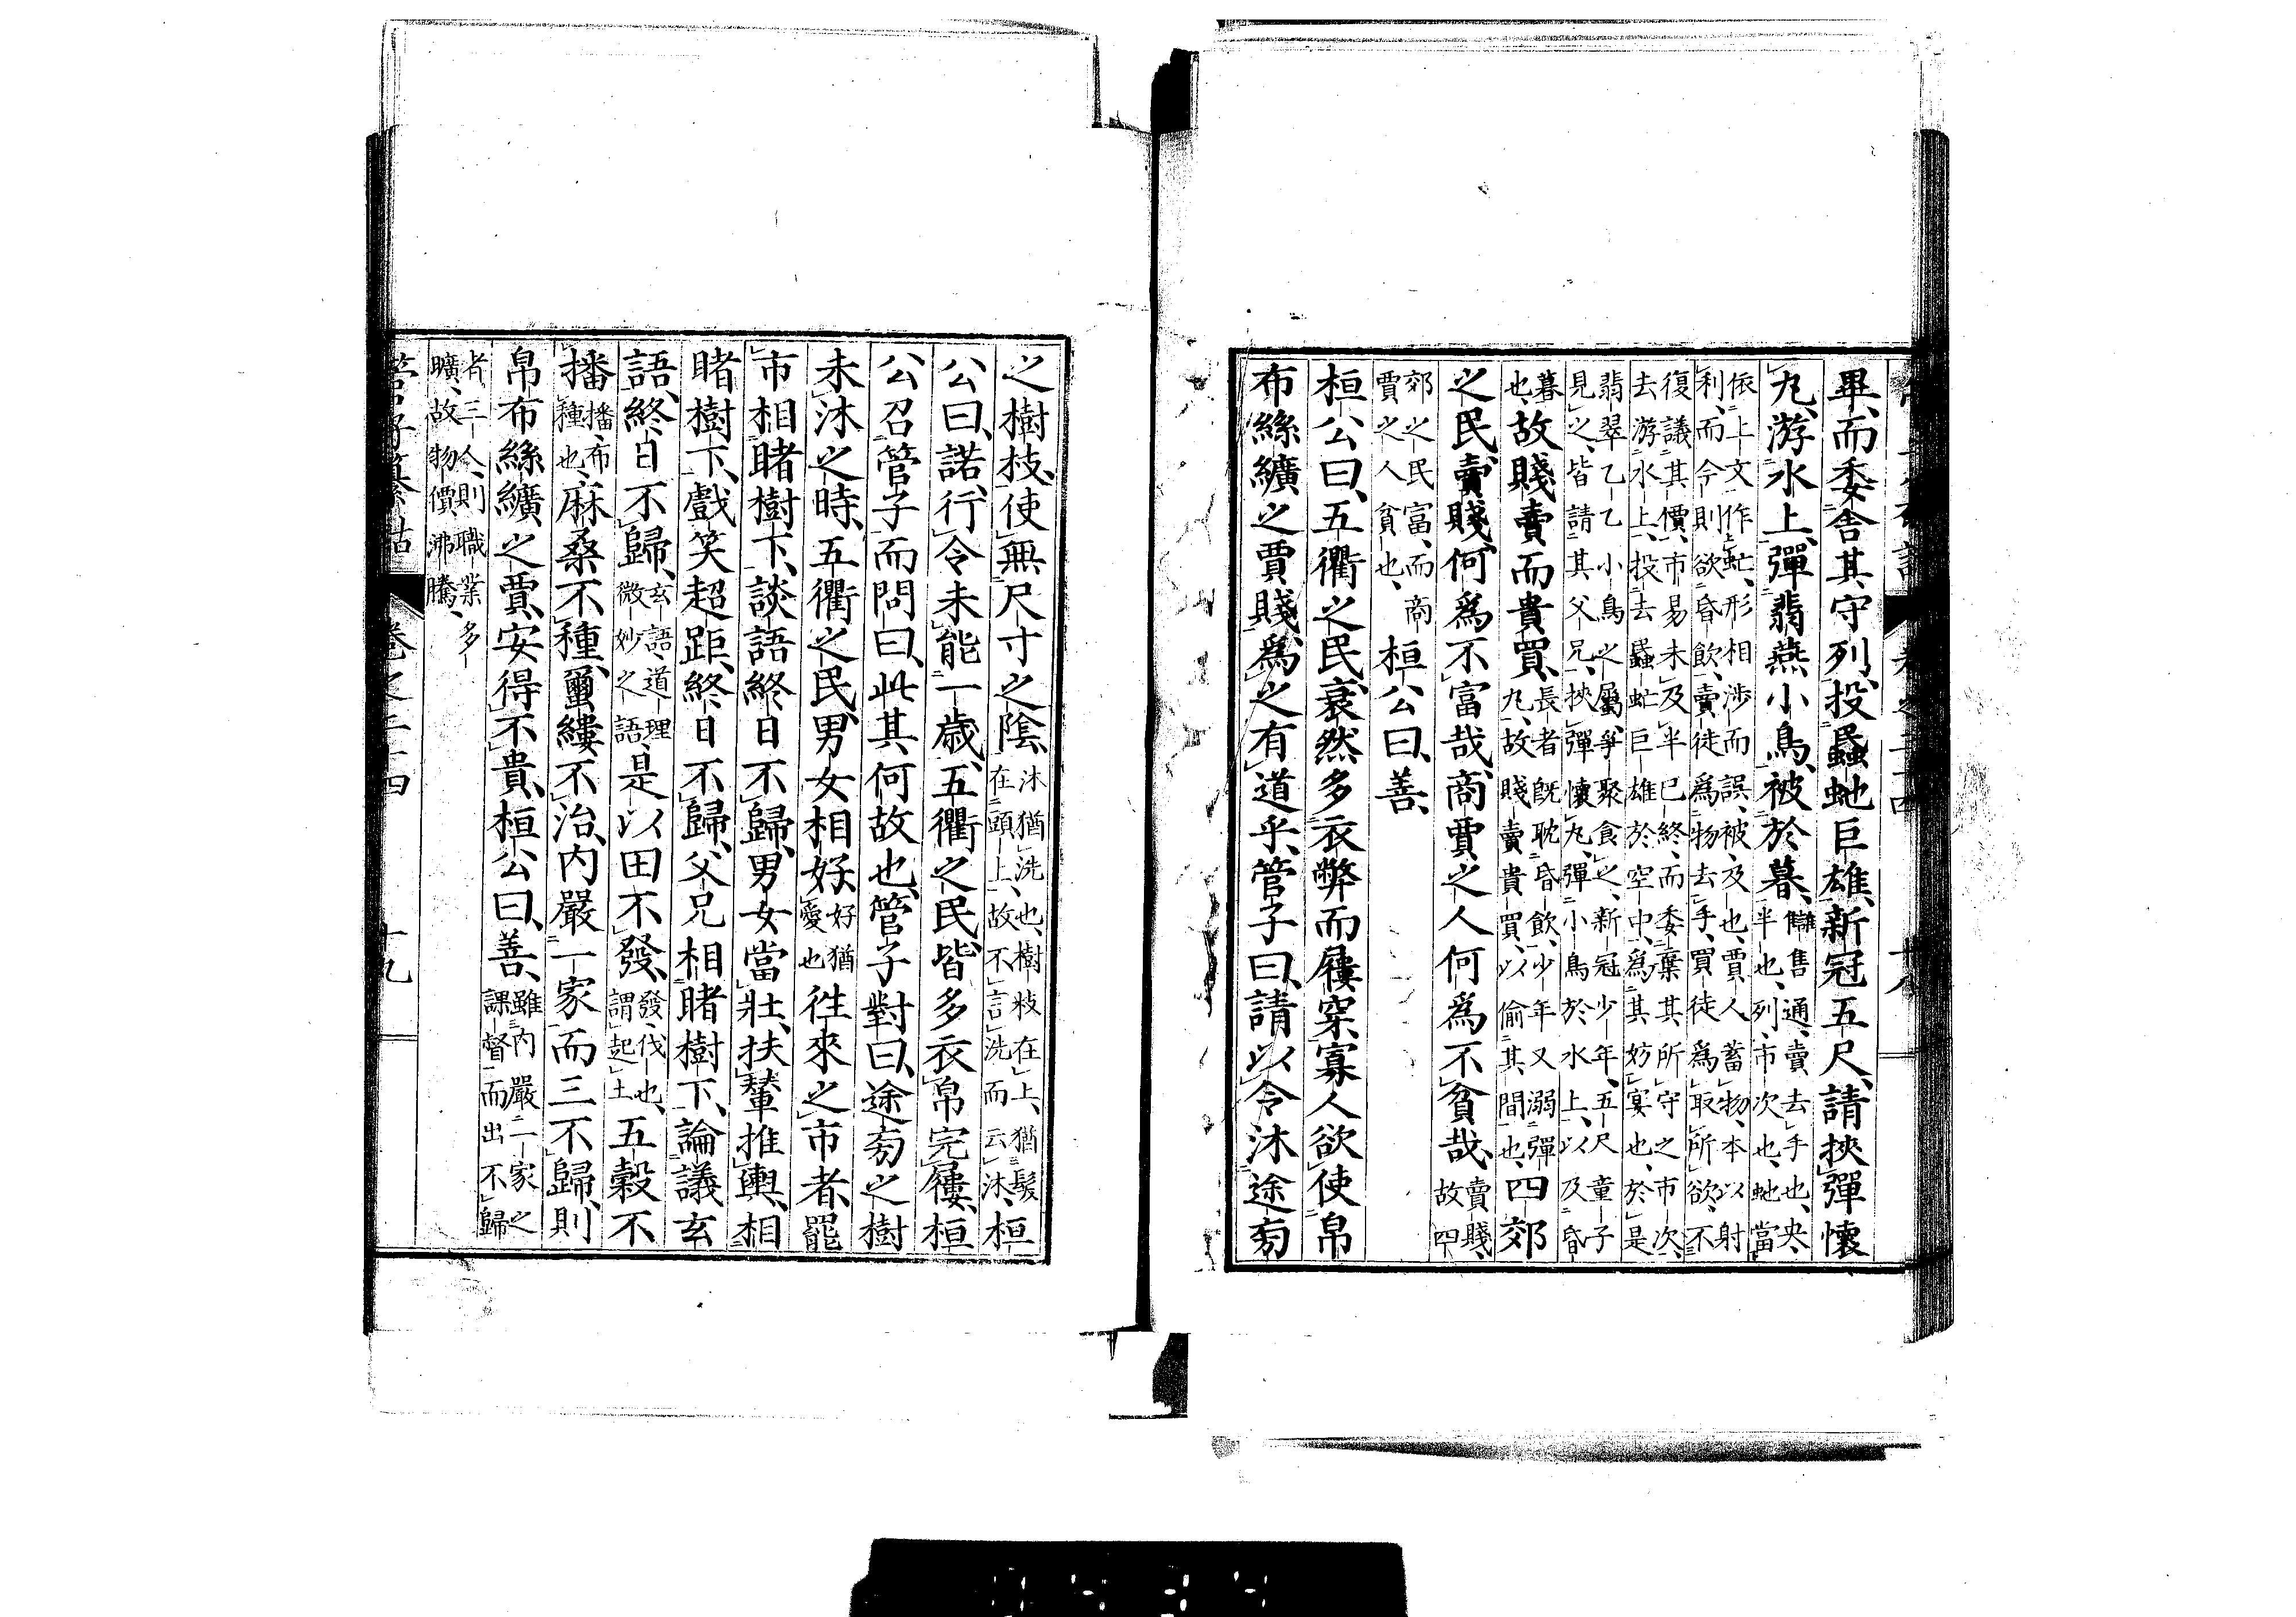 畢、而委舍其守列、投蟁虵巨雄、新冠五尺、請挾彈懷
丸、游水上、彈翡燕小鳥、被於暮、讎售通、賣去手也、央、
半也、列、市次也、虵、當
依上文作虻、形相涉而誤、被、及也、賈人蓄物、本以射
利、而今則欲昏飲、賣徒爲物去手、買徒爲取所欲、不
復議其價、市易未及半已終、而委棄其所守之市次、
去游水上、投去蟁虻巨雄於空中、爲其妨宴也、於是
翡翠乙乙小鳥之屬、爭聚食之、新冠少年、五尺童子
見之、皆請其父兄、挾彈懷丸、彈小鳥於水上、以及昏
暮
也、故賤賣而貴買、長者既耽昏飲、少年又溺彈
丸、故賤賣貴買、以偷其間也、四郊
之民賣賤、何爲不富哉、商賈之人何爲不貧哉、賣賤、
故四
郊之民富、而商
賈之人貧也、桓公曰、善、
桓公曰、五衢之民、衰然多衣弊而屨穿、寡人欲使帛
布絲纊之賈賤、爲之有道乎、管子曰、請以令沐途旁
之樹枝、使無尺寸之陰、沐猶洗也、樹枝在上、猶髮
在頭上、故不言洗而云沐、桓
公曰、諾、行令未能一歲、五衢之民、皆多衣帛完屨、桓
公召管子而問曰、此其何故也、管子對曰、途旁之樹
未沐之時、五衢之民、男女相好、好猶
愛也往來之市者、罷
市相睹樹下、談語終日不歸、男女當壯、扶輦推輿、相
睹樹下、戲笑超距、終日不歸、父兄相睹樹下、論議玄
語、終日不歸、玄語、道理
微妙之語、是以田不發、發、伐也、
謂起土五穀不
播、播、布
種也、麻桑不種、蠒縷不治、內嚴一家而三不歸、則
帛布絲纊之賈、安得不貴、桓公曰、善、雖內嚴一家之
課督而出不歸
者三人、則職業多
曠、故物價沸騰、
管子纂詁 卷之二十四 十九